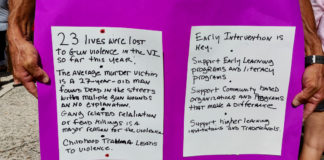 23 lives were lost
to gun violence in the VI
so far this year.
The average murder victim
is a 27-year-old man
found dead in the streets
with multiple gun wounds
an no explanation.
Gang related relaliation
or feud killings is a
major reason for the violence.
Childhood Trauma leads
to violence.
Early Intervention is
Key.
Support Early Learning
programs and literacy
programs
Support Community based
organizations and programs
that make a difference
Support higher learning
institutions and Tradeschools